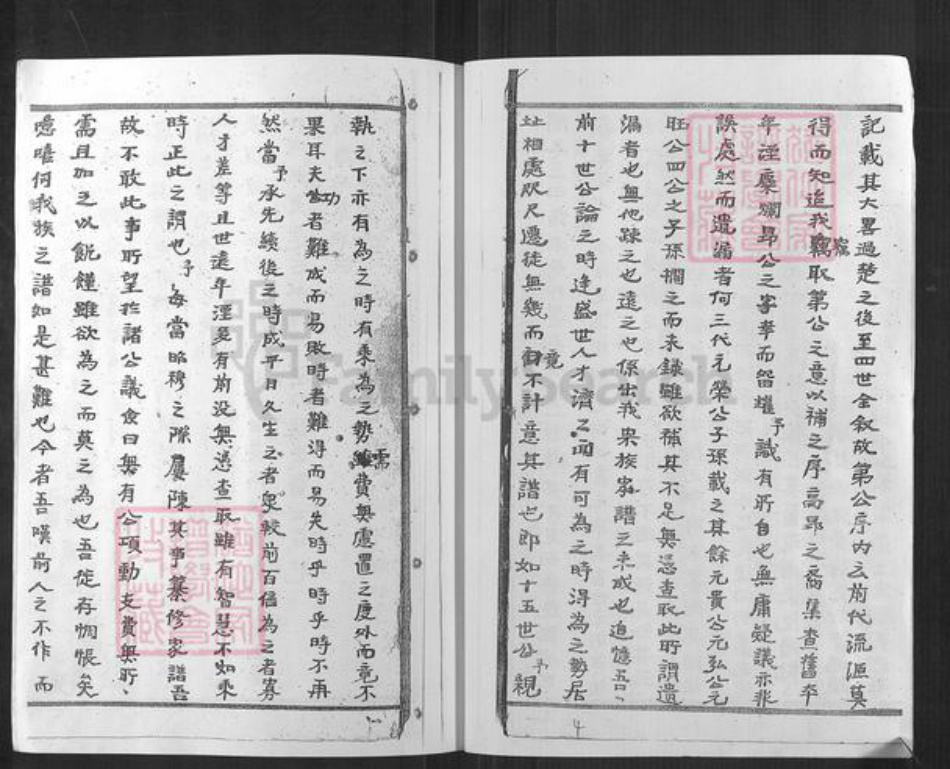 記載其大畧過楚之後至四世全叙故第公序內云前代流源莫
得而知迨我竊取第公之意以補之序高昴之裔集查舊卒
年湮糜爛昴公之字牽而皆耀予識有所自也無庸疑議亦非
誤處然而遺漏者何三代元榮公子孫載之其餘元貴公元弘公元
旺公四公之子孫擱之而未錄雖欲補其不足無憑查取此所謂遺
漏者也無他疎之也遠之也係出我宋族家譜之未成也追憶吾
前十世公論之時逢盛世人才濟之而有可為之時得為之勢居
址相處咫尺遷徒無幾而竟不計意其譜也即如十五世公予親
執之下亦有為之時有乘為之勢需費無處置之度外而竟不
果耳夫功者難成而易敗時者難得而易失時乎時乎時不再
然當予承先續後之時成平日久生之者衆較前百倍為之者寡
人才差等且世遠年湮多有前没無憑查取雖有智慧不如乘
時正此之謂也予每當昭穆之際屢陳其事纂修家譜吾
故不敢此事所望於諸公議僉曰無有公項動支費無所
需且加之以飢饉雖欲為之而莫之為也吾徒存惆悵矣
噫嘻何我族之譜如是甚難也今者吾嘆前人之不作而
FamilySearch